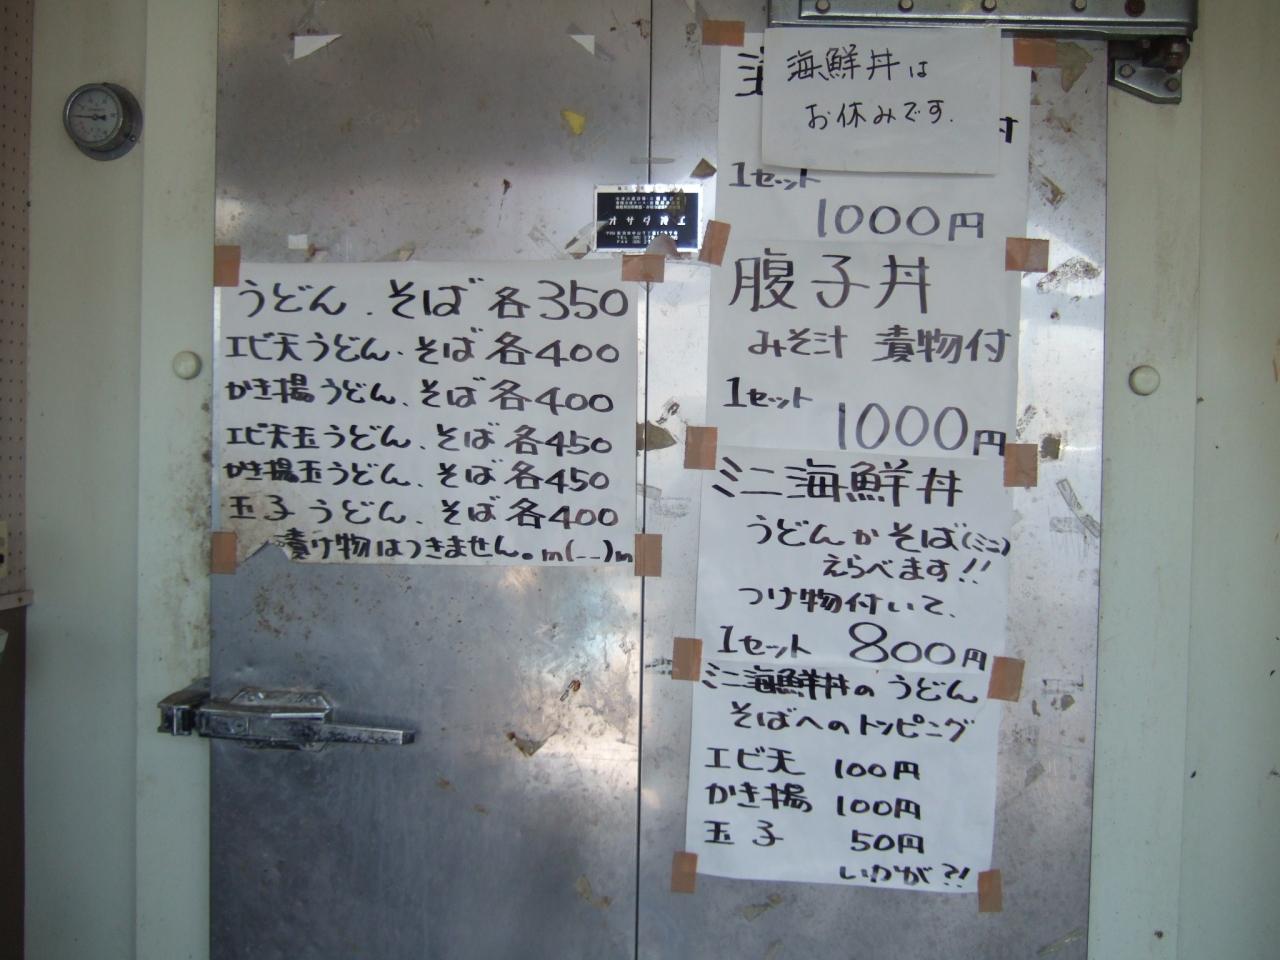 うどん、そば各350
エビ天うどん、そば各400
かき揚うどん、そば各400
エビ天玉うどん、そば各450
かき揚玉うどん、そば各450
玉子うどん、そば各400
漬け物はつきません。m(__)m
オサダ
海鮮丼は
お休みです.
付
1セット
1000円
腹子丼
みそ汁 漬物付
1セット
1000円
ミニ海鮮丼
うどんかそば(ミニ)
えらべます!!
つけ物付いて、
1セット 800円
ミニ海鮮丼のうどん
そばへのトッピング
エビ天 100円
かき揚 100円
玉子 50円
いかが?!